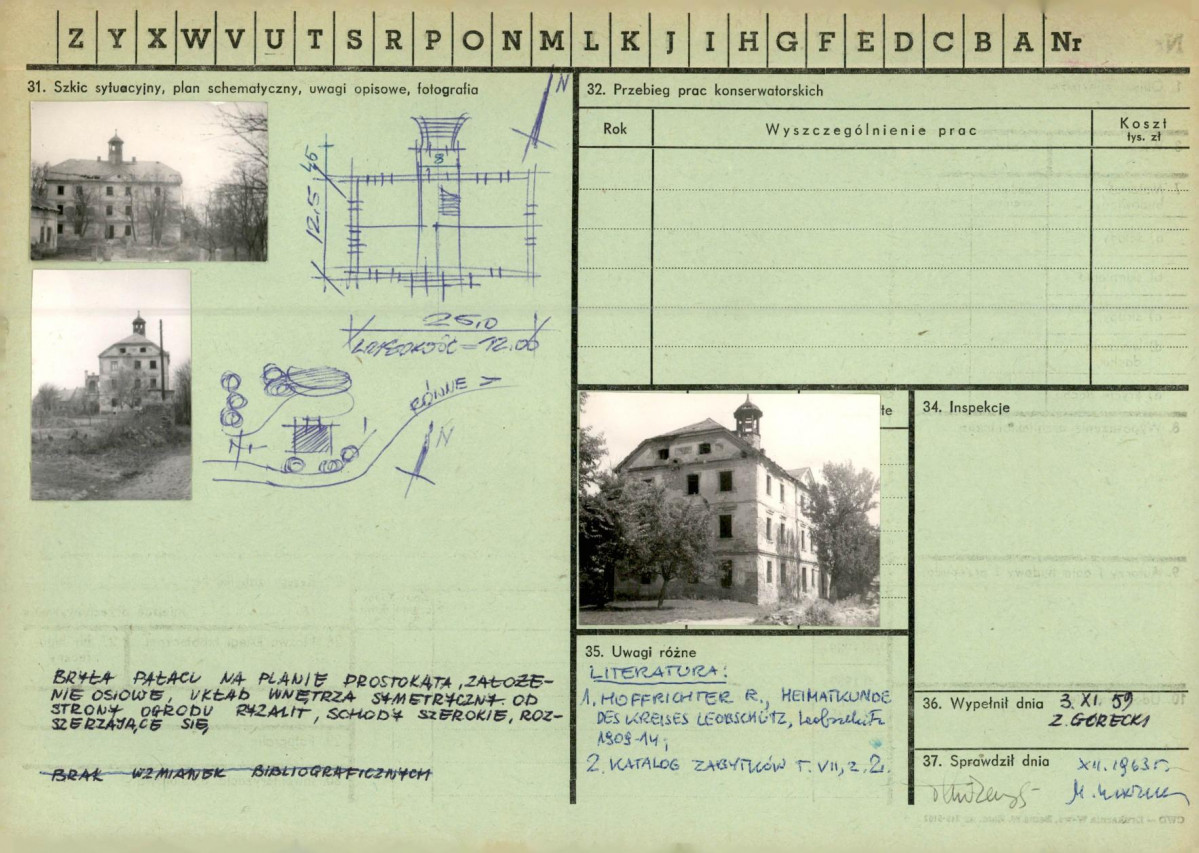 Z Y X W V U T S R P O N M L K J I H G F E D C B A Nr
31. Szkic sytuacyjny, plan schematyczny, uwagi opisowe, fotografia
N
8
45
12.5
25,0
WYSOKOŚĆ = 12.00
RÓWNE >
N
BRYŁA PAŁACU NA PLANIE PROSTOKĄTA, ZAŁOŻE-
NIE OSIOWE, UKŁAD WNĘTRZA SYMETRYCZNY. OD
STRONY OGRODU RYZALIT, SCHODY SZEROKIE, ROZ-
SZERZAJĄCE SIĘ,
BRAK WZMIANEK BIBLIOGRAFICZNYCH
32. Przebieg prac konserwatorskich
Rok
Wyszczególnienie prac
Koszt
tys. zł
34. Inspekcje
35. Uwagi różne
LITERATURA:
1. HOFFRICHTER R., HEIMATKUNDE
DES KREISES LEOBSCHÜTZ, Leobschütz
1909-14;
2. KATALOG ZABYTKÓW T. VII, z. 2.
36. Wypełnił dnia 3. XI. 59
Z. GÓRECKI
37. Sprawdził dnia XII. 1963 r.